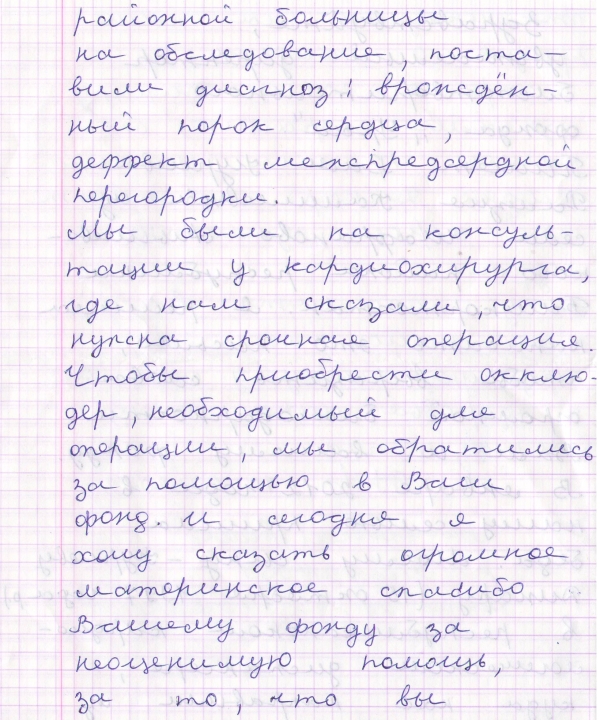 районной больницы
на обследование, поста-
вили диагноз: врождён-
ный порок сердца,
деффект межпредсердной
перегородки.
Мы были на консуль-
тации у кардиохирурга,
где нам сказали, что
нужна срочная операция.
Чтобы приобрести окклю-
дер, необходимый для
операции, мы обратились
за помощью в Ваш
фонд. И сегодня я
хочу сказать огромное
материнское спасибо
Вашему фонду за
неоценимую помощь,
за то, что вы